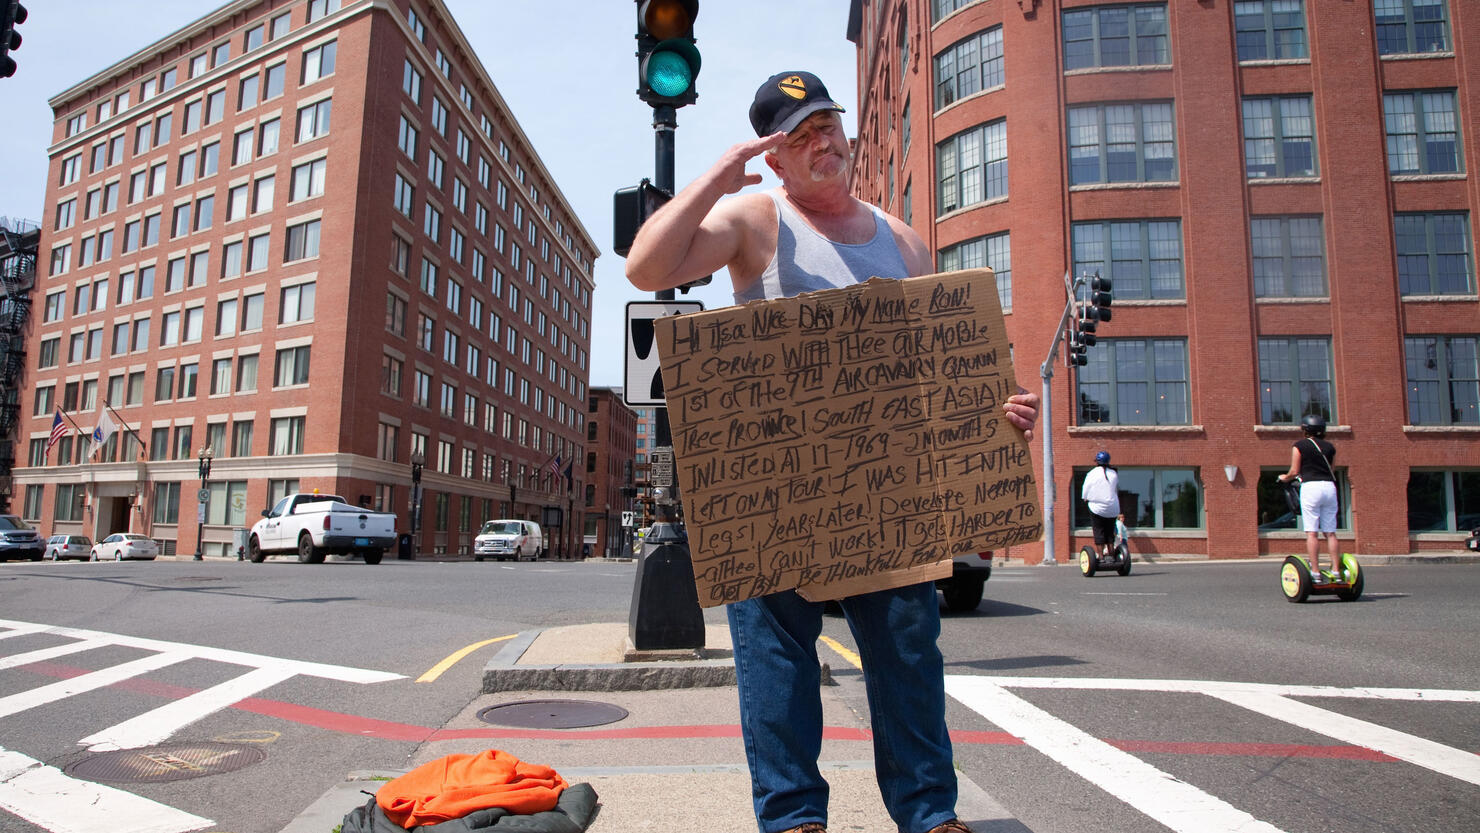 Hi its a Nice DAy My Name Ron!
I Served With Thee air Moble
1st of the 9TH Air CAvAlry QAUNN
Tree Province! South East ASIA!!
Inlisted AT 17-1969-2 Months
Left on My Tour! I WAS Hit IN the
Legs! Years Later! Develope Nerropp
athee! Can't Work! It gets Harder To
get But Be Thankfull For your Support